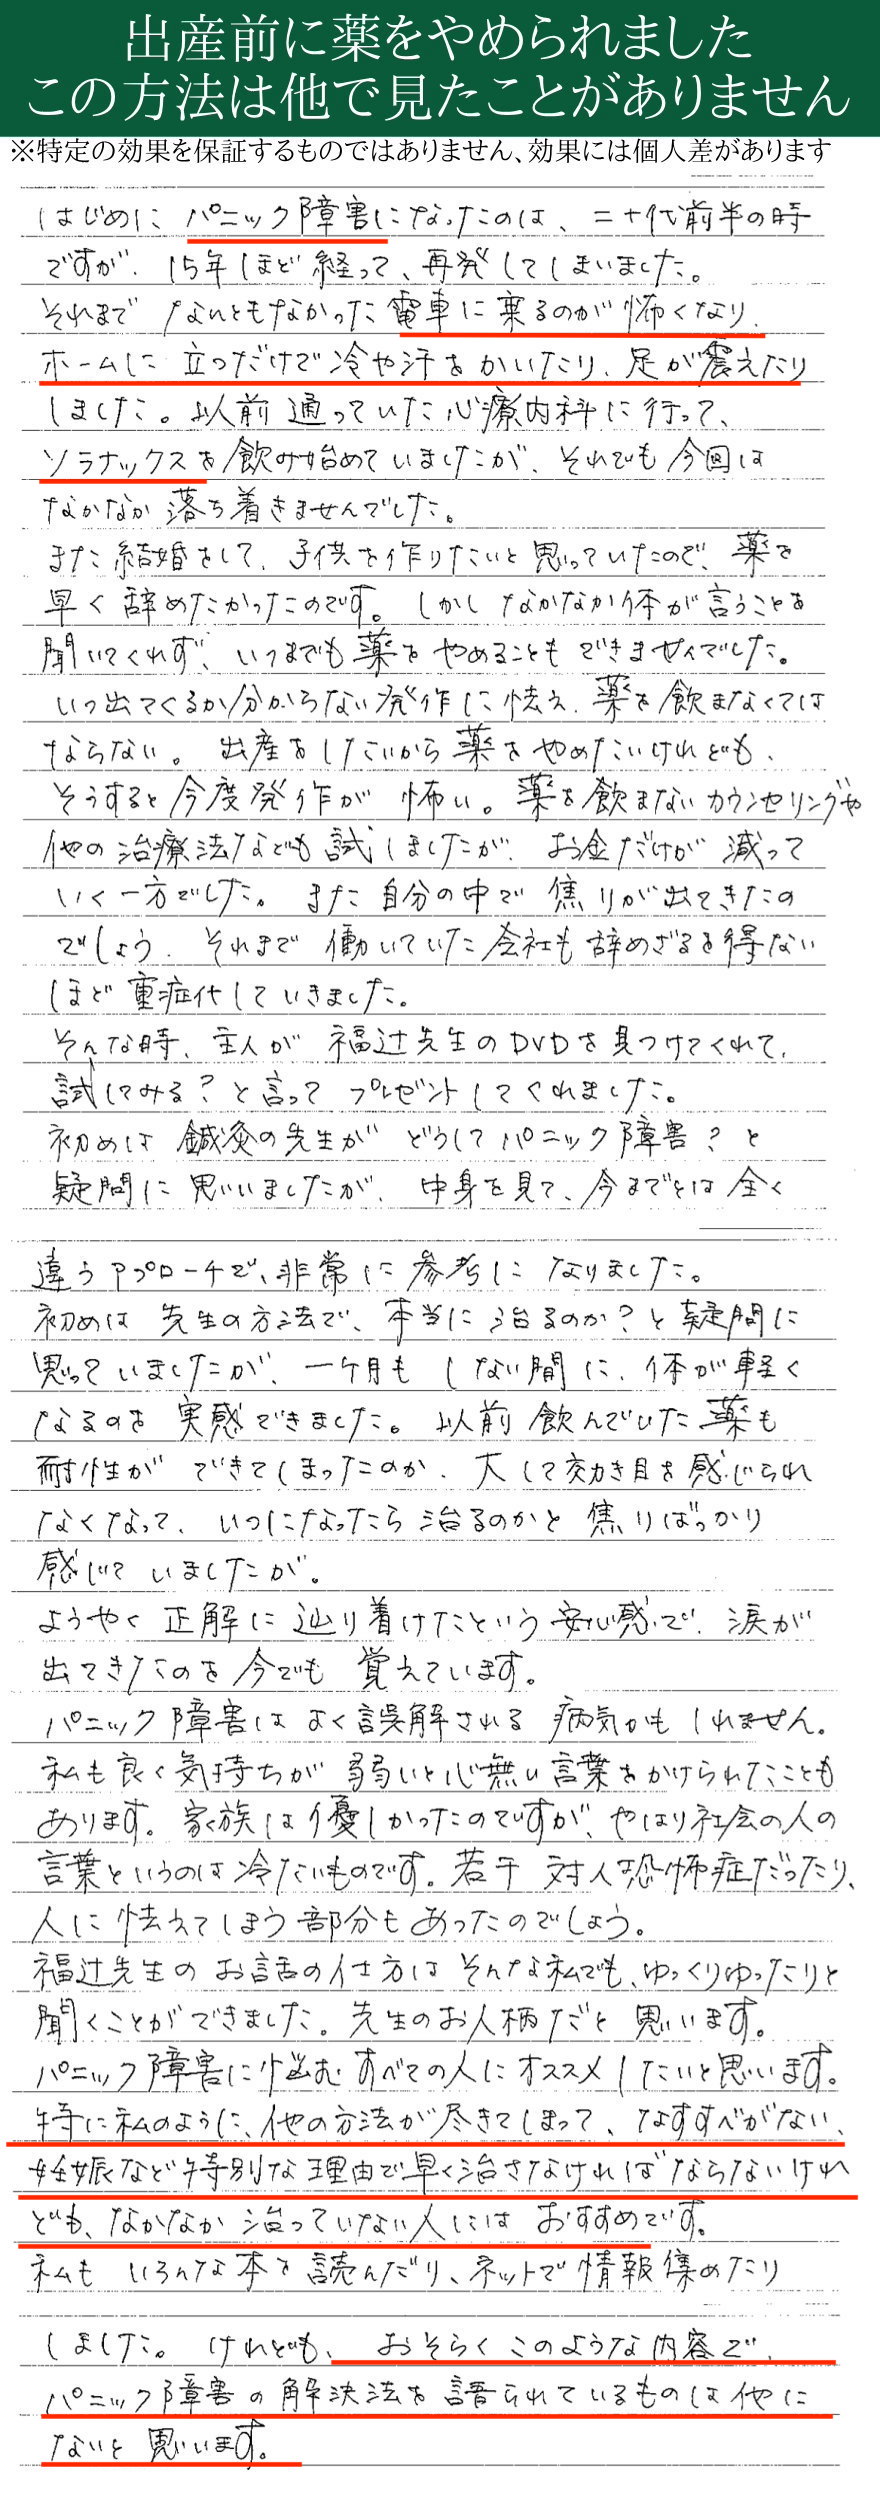 出産前に薬をやめられました
この方法は他で見たことがありません
※特定の効果を保証するものではありません、効果には個人差があります
はじめに パニック障害になったのは、二十代前半の時
ですが、15年ほど経って、再発してしまいました。
それまで なんともなかった電車に乗るのが怖くなり、
ホームに立つだけで冷や汗をかいたり、足が震えたり
しました。以前通っていた心療内科に行って、
ソラナックスを飲み始めていましたが、それでも今回は
なかなか落ち着きませんでした。
また結婚をして、子供を作りたいと思っていたので、薬を
早く辞めたかったのです。しかしなかなか体が言うことを
聞いてくれず、いつまでも薬をやめることもできませんでした。
いつ出てくるか分からない発作に怯え、薬を飲まなくては
ならない。出産をしたいから薬をやめたいけれども、
そうすると今度発作が怖い。薬を飲まないカウンセリングや
他の治療法なども試しましたが、お金だけが減って
いく一方でした。また自分の中で焦りが出てきたの
でしょう、それまで働いていた会社も辞めざるを得ない
ほど重症代していきました。
そんな時、主人が福辻先生のDVDを見つけてくれて、
試してみる?と言ってプレゼントしてくれました。
初めは鍼灸の先生がどうしてパニック障害?と
疑問に思いいましたが、中身を見て、今までとは全く
違うアプローチで、非常に参考になりました。
初めは先生の方法で、本当に治るのか?と疑問に
思っていましたが、一ケ月もしない間に、体が軽く
なるのを実感できました。以前飲んでいた薬も
耐性ができてしまったのか、大して効き目を感じられ
なくなって、いつになったら治るのかと焦りばっかり
感じていましたが。
ようやく正解に辿り着けたという安心感で、涙が
出てきたのを今でも覚えています。
パニック障害はよく誤解される病気かもしれません。
私も良く気持ちが弱いと心無い言葉をかけられたことも
あります。家族は優しかったのですが、やはり社会の人の
言葉というのは冷たいものです。若干対人恐怖症だったり、
人に怯えてしまう部分もあったのでしょう。
福辻先生のお話の仕方はそんな私でも、ゆっくりゆったりと
聞くことができました。先生のお人柄だと思います。
パニック障害に悩むすべての人にオススメしたいと思います。
特に私のように、他の方法が尽きてしまって、なすすべがない、
妊娠など特別な理由で早く治さなければならないけれ
ども、なかなか治っていない人にはおすすめです。
私もいろんな本を読んだり、ネットで情報集めたり
しました。けれども、おそらくこのような内容で、
パニック障害の解決法を語られているものは他に
ないと思いいます。